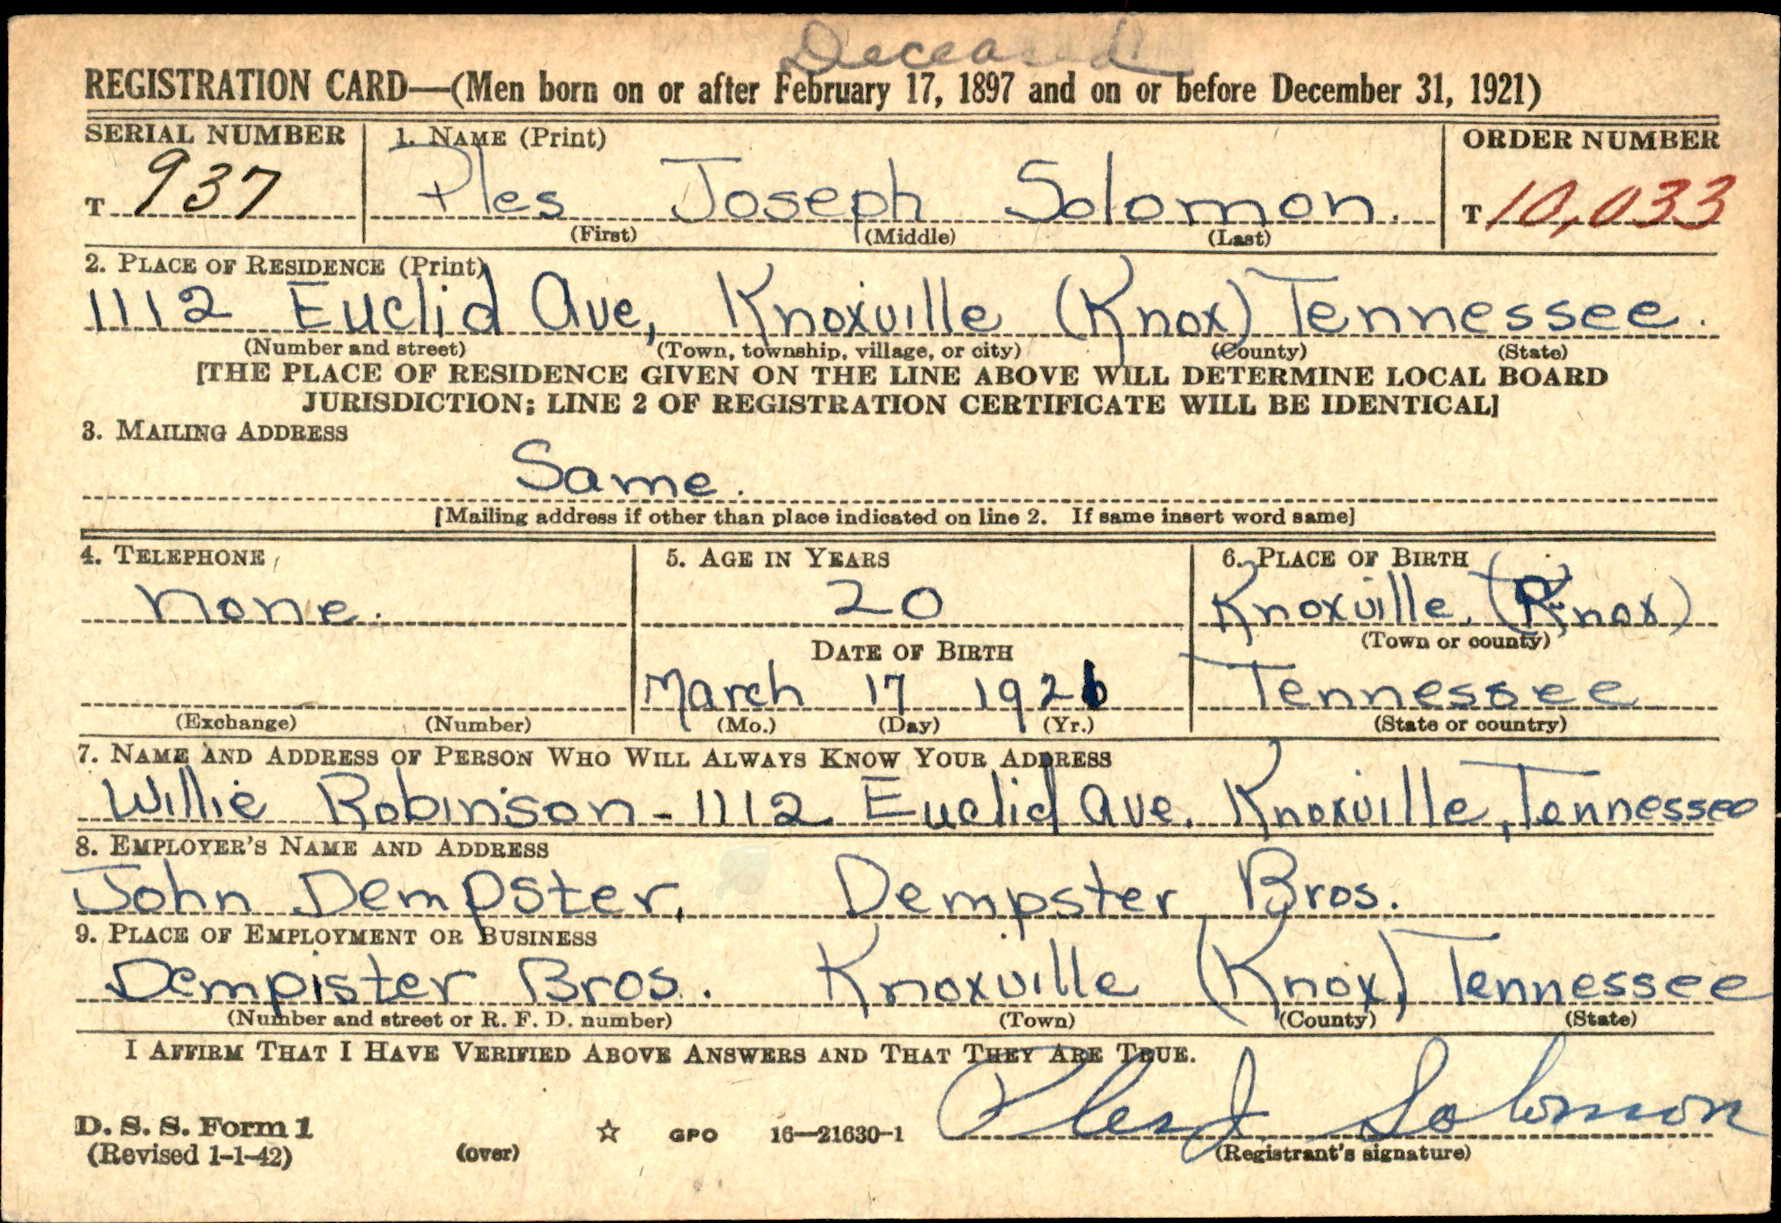 Deceased
REGISTRATION CARD—(Men born on or after February 17, 1897 and on or before December 31, 1921)
SERIAL NUMBER 1. NAME (Print) ORDER NUMBER
T 937 Ples Joseph Solomon. T 10,033
(First) (Middle) (Last)
2. PLACE OF RESIDENCE (Print)
1112 Euclid Ave, Knoxville (Knox) Tennessee.
(Number and street) (Town, township, village, or city) (County) (State)
[THE PLACE OF RESIDENCE GIVEN ON THE LINE ABOVE WILL DETERMINE LOCAL BOARD
JURISDICTION; LINE 2 OF REGISTRATION CERTIFICATE WILL BE IDENTICAL]
3. MAILING ADDRESS
Same.
[Mailing address if other than place indicated on line 2. If same insert word same]
4. TELEPHONE 5. AGE IN YEARS 6. PLACE OF BIRTH
None. 20 Knoxville, (Knox)
(Town or county)
DATE OF BIRTH
March 17 1921 Tennessee
(Exchange) (Number) (Mo.) (Day) (Yr.) (State or country)
7. NAME AND ADDRESS OF PERSON WHO WILL ALWAYS KNOW YOUR ADDRESS
Willie Robinson - 1112 Euclid Ave. Knoxville, Tennessee
8. EMPLOYER'S NAME AND ADDRESS
John Dempster, Dempster Bros.
9. PLACE OF EMPLOYMENT OR BUSINESS
Dempister Bros. Knoxville (Knox) Tennessee
(Number and street or R. F. D. number) (Town) (County) (State)
I AFFIRM THAT I HAVE VERIFIED ABOVE ANSWERS AND THAT THEY ARE TRUE.
Ples J Solomon
D. S. S. Form 1
(Revised 1-1-42) (over) ☆ GPO 16—21630-1 (Registrant's signature)